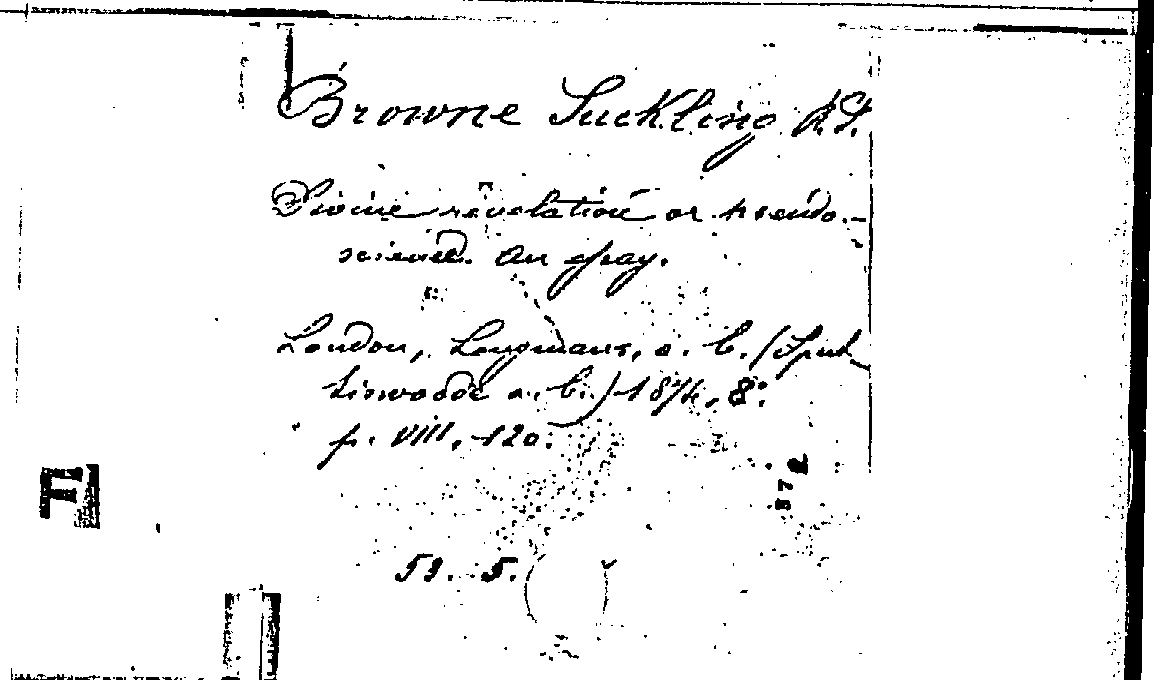 Browne Suckling R.S.
Divine revelation or pseudo-
science. An essay.
London, Longmans, a. C. (Spot-
tiswoode a. C.) 1874, 8º.
p. VIII, 120.
372
F